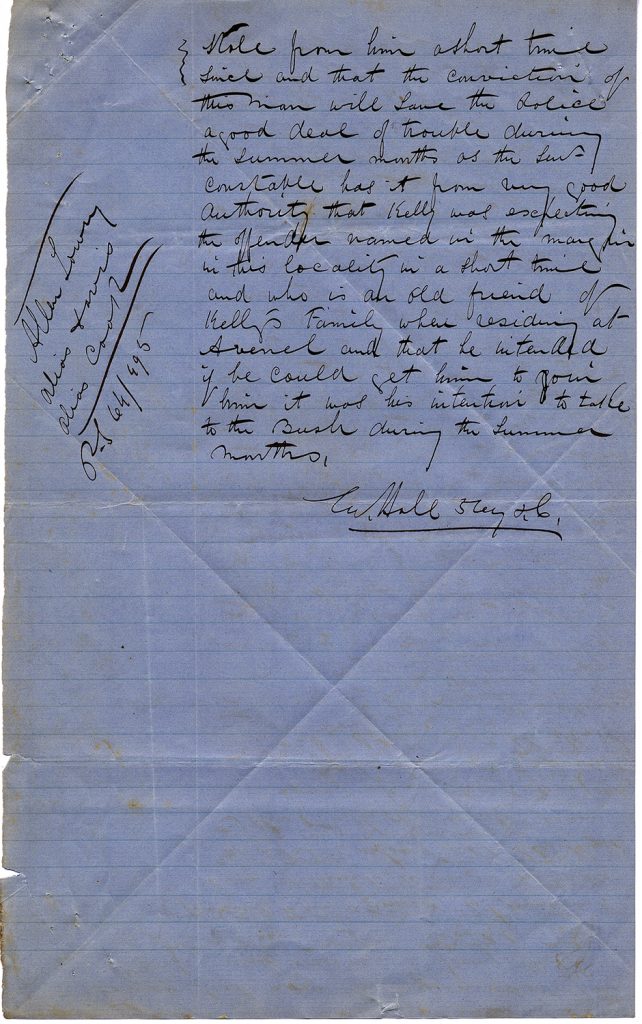 Stole from him a short time
since and that the conviction of
this man will save the Police
a good deal of trouble during
the Summer months as the Sen-
constable has it from very good
Authority that Kelly was expecting
the offender named in the margin
in this locality in a short time
and who is an old friend of
Kelly's Family when residing at
Avenel and that he intended
if he could get him to join
him it was his intention to take
to the Bush during the Summer
months,
Hall
Allen Lowry
alias Davis
alias Cook